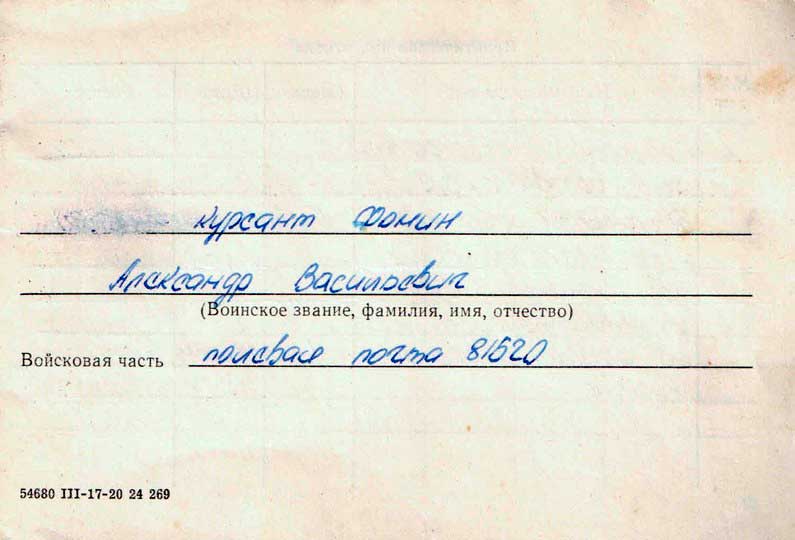 курсант Фомин
Александр Васильевич
(Воинское звание, фамилия, имя, отчество)
Войсковая часть полевая почта 81520
54680 III-17-20 24 269